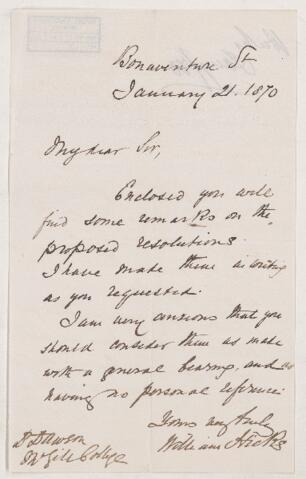 Bonaventure St
January 21. 1870
My dear Sir,
Enclosed you will
find some remarks on the
proposed resolutions.
I have made them in writing
as you requested.
I am very anxious that you
should consider them as made
with a general bearing, and as
having no personal reference.
Yours very truly
William Hicks
Dr Dawson
McGill College